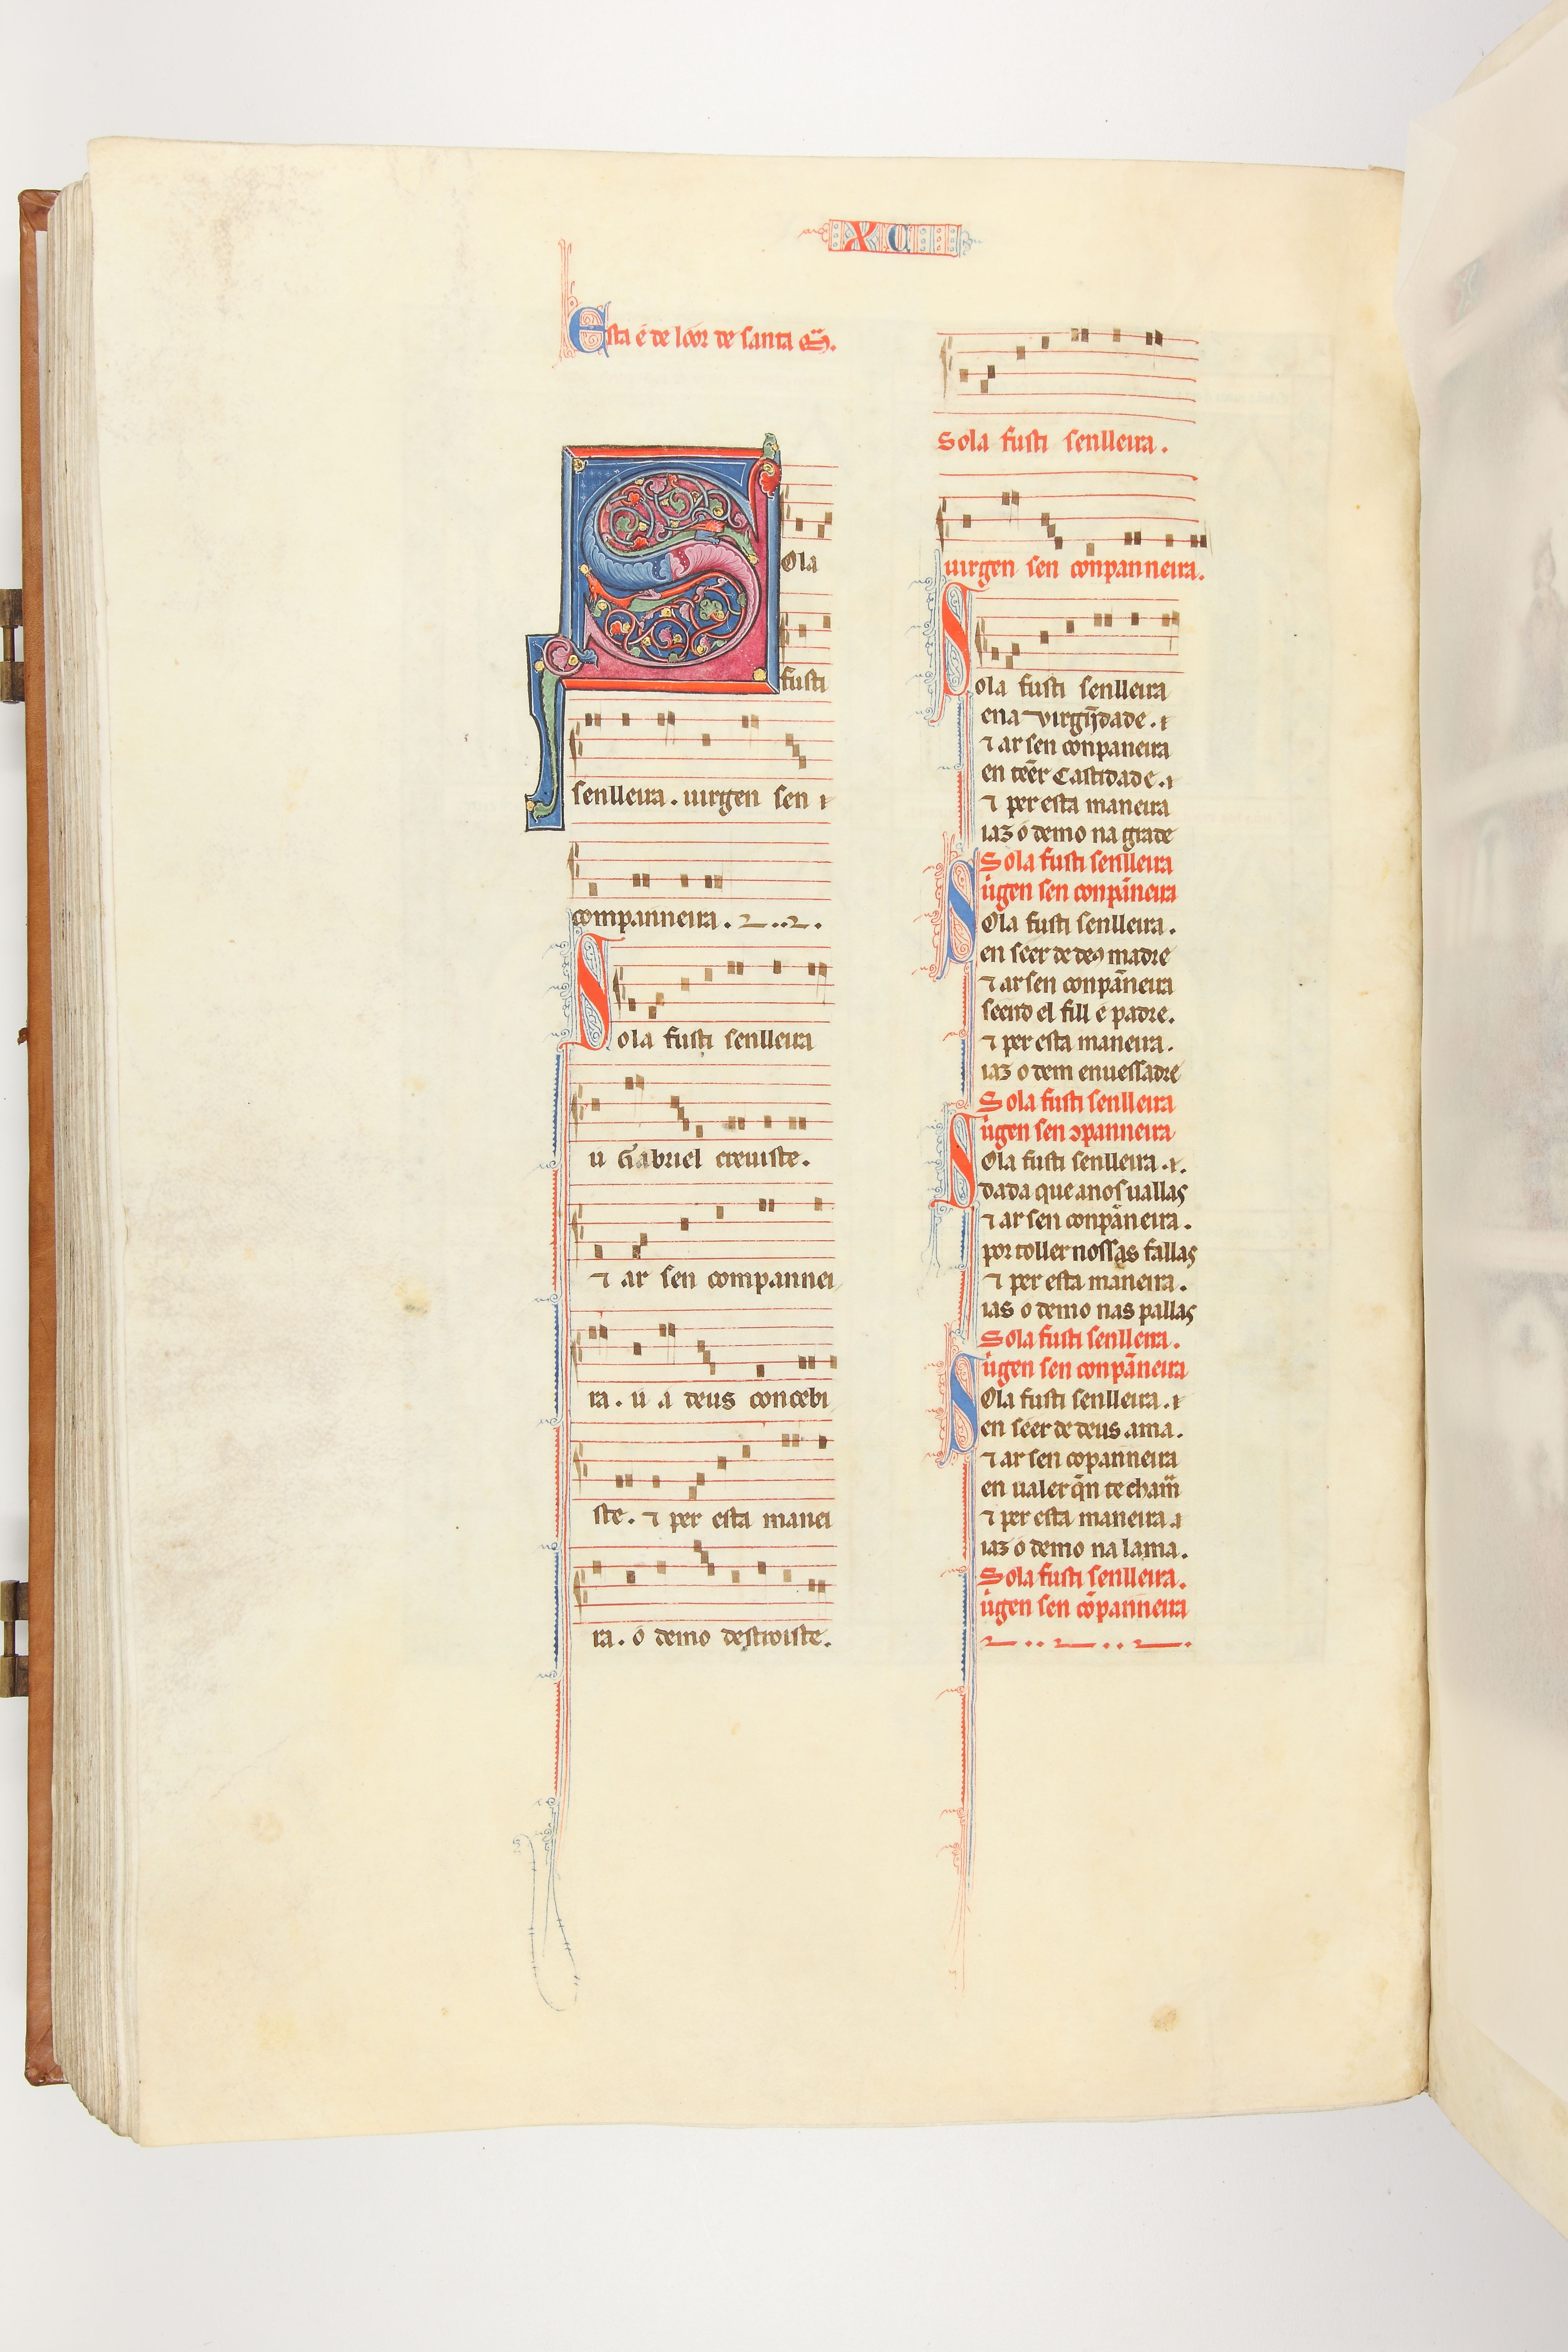 XC
Esta é de loor de santa M̃.
Sola
fusti
senlleira. uirgen sen
companneira.
Sola fusti senlleira
u Gabriel creuiste.
⁊ ar sen compannei
ra. u a deus concebi
ste. ⁊ per esta manei
ra. o demo destroiste.
Sola fusti senlleira.
uirgen sen conpanneira.
Sola fusti senlleira
ena virgĩjdade.
⁊ ar sen conpaneira
en tẽer Castidade.
⁊ per esta maneira
iaz o demo na grade
Sola fusti senlleira
uirgen sen conpãneira
Sola fusti senlleira.
en seer de deꝰ madre
⁊ ar sen conpãneira
seendo el fill e padre.
⁊ per esta maneira.
iaz o dem enuessadre
Sola fusti senlleira
uirgen sen ↄpanneira
Sola fusti senlleira.
dada que a nos uallas
⁊ ar sen conpãneira.
por toller nossas fallas
⁊ per esta maneira.
ias o demo nas pallas
Sola fusti senlleira.
uirgen sen conpãneira
Sola fusti senlleira.
en seer de deus ama.
⁊ ar sen copanneira
en ualer q̃n te chama
⁊ per esta maneira
iaz o demo na lama.
Sola fusti senlleira.
uirgen sen cõpanneira